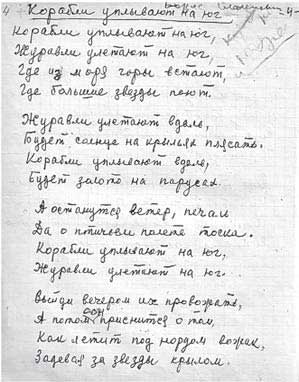 4 Корабли уплывают на юг 4
Корабли уплывают на юг,
Журавли улетают на юг,
Где из моря горы встают,
Где большие звезды поют.
Журавли улетают вдаль,
Будет солнце на крыльях плясать.
Корабли уплывают вдаль,
Будет золото на парусах.
А останутся ветер, печаль
Да о птичьем полете тоска.
Корабли уплывают на юг,
Журавли улетают на юг.
Выйди вечером их провожать,
А потом сон приснится о том,
Как летит под нордом вожак,
Задевая за звезды крылом.